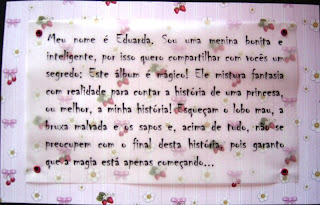 Meu nome é Eduarda. Sou uma menina bonita e
inteligente, por isso quero compartilhar com vocês um
segredo: Este álbum é mágico! Ele mistura fantasia
com realidade para contar a história de uma princesa,
ou melhor, a minha história! Esqueçam o lobo mau, a
bruxa malvada e os sapos e, acima de tudo, não se
preocupem com o final desta história, pois garanto
que a magia está apenas começando...